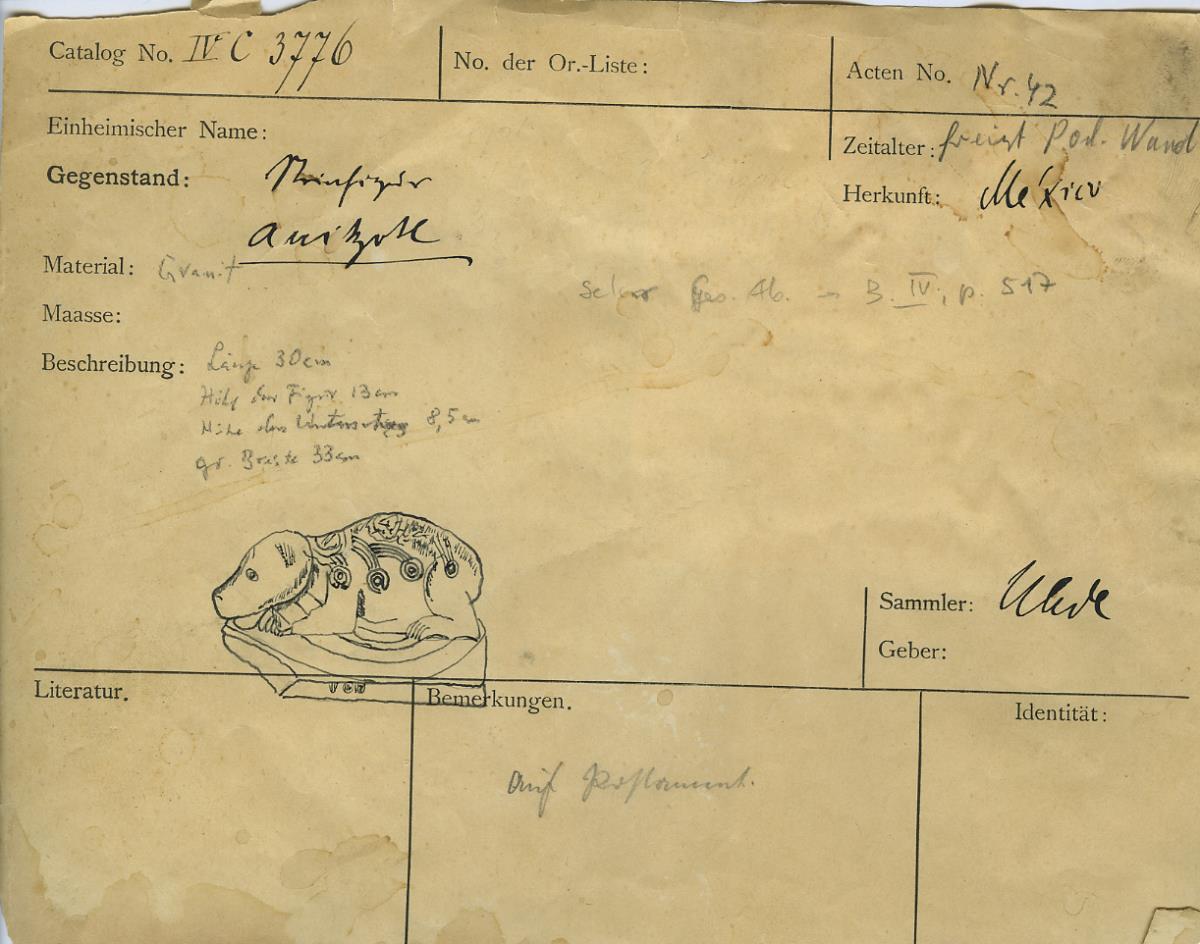 Catalog No. IV C 3776
No. der Or.-Liste:
Acten No. Nr. 42
Einheimischer Name:
Zeitalter: Pod. Wand
Gegenstand: Steinfigur
Herkunft: México
Material: Granit
Ges. Ab. B. IV, p. 517
Maasse:
Beschreibung: Länge 30 cm
Höhe der Figur 13 cm
Höhe des 8,5 cm
gr. Breite 33 cm
Sammler: Uhde
Geber:
Literatur.
Bemerkungen.
Identität:
auf Postament.